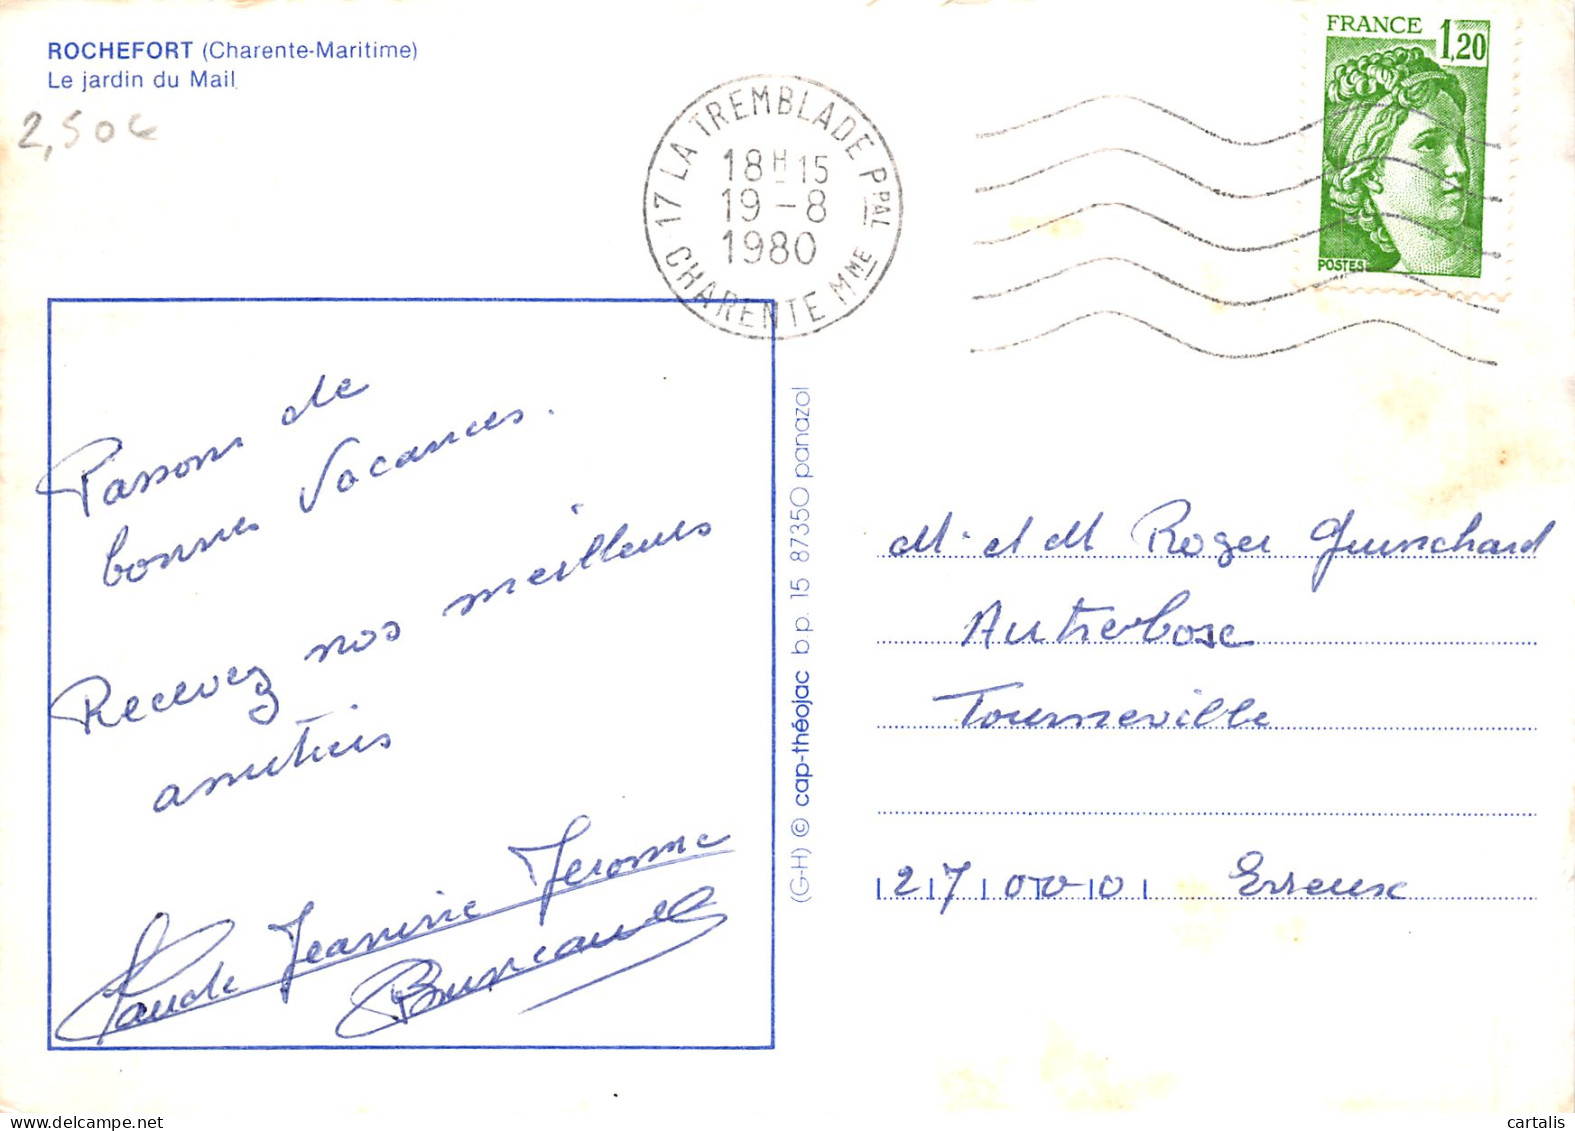 ROCHEFORT (Charente-Maritime)
Le jardin du Mail
2,50€
17 LA TREMBLADE PPAL
18H15
19-8
1980
CHARENTE MME
FRANCE 1,20
POSTES
Passons de
bonnes Vacances.
Recevez nos meilleurs
amitiés
Claude Jeanine Jerome
(G-H) © cap-théojac bp. 15 87350 panazol
M. et M Roger Guinchard
Tourneville
27000 Evreux
cartalis